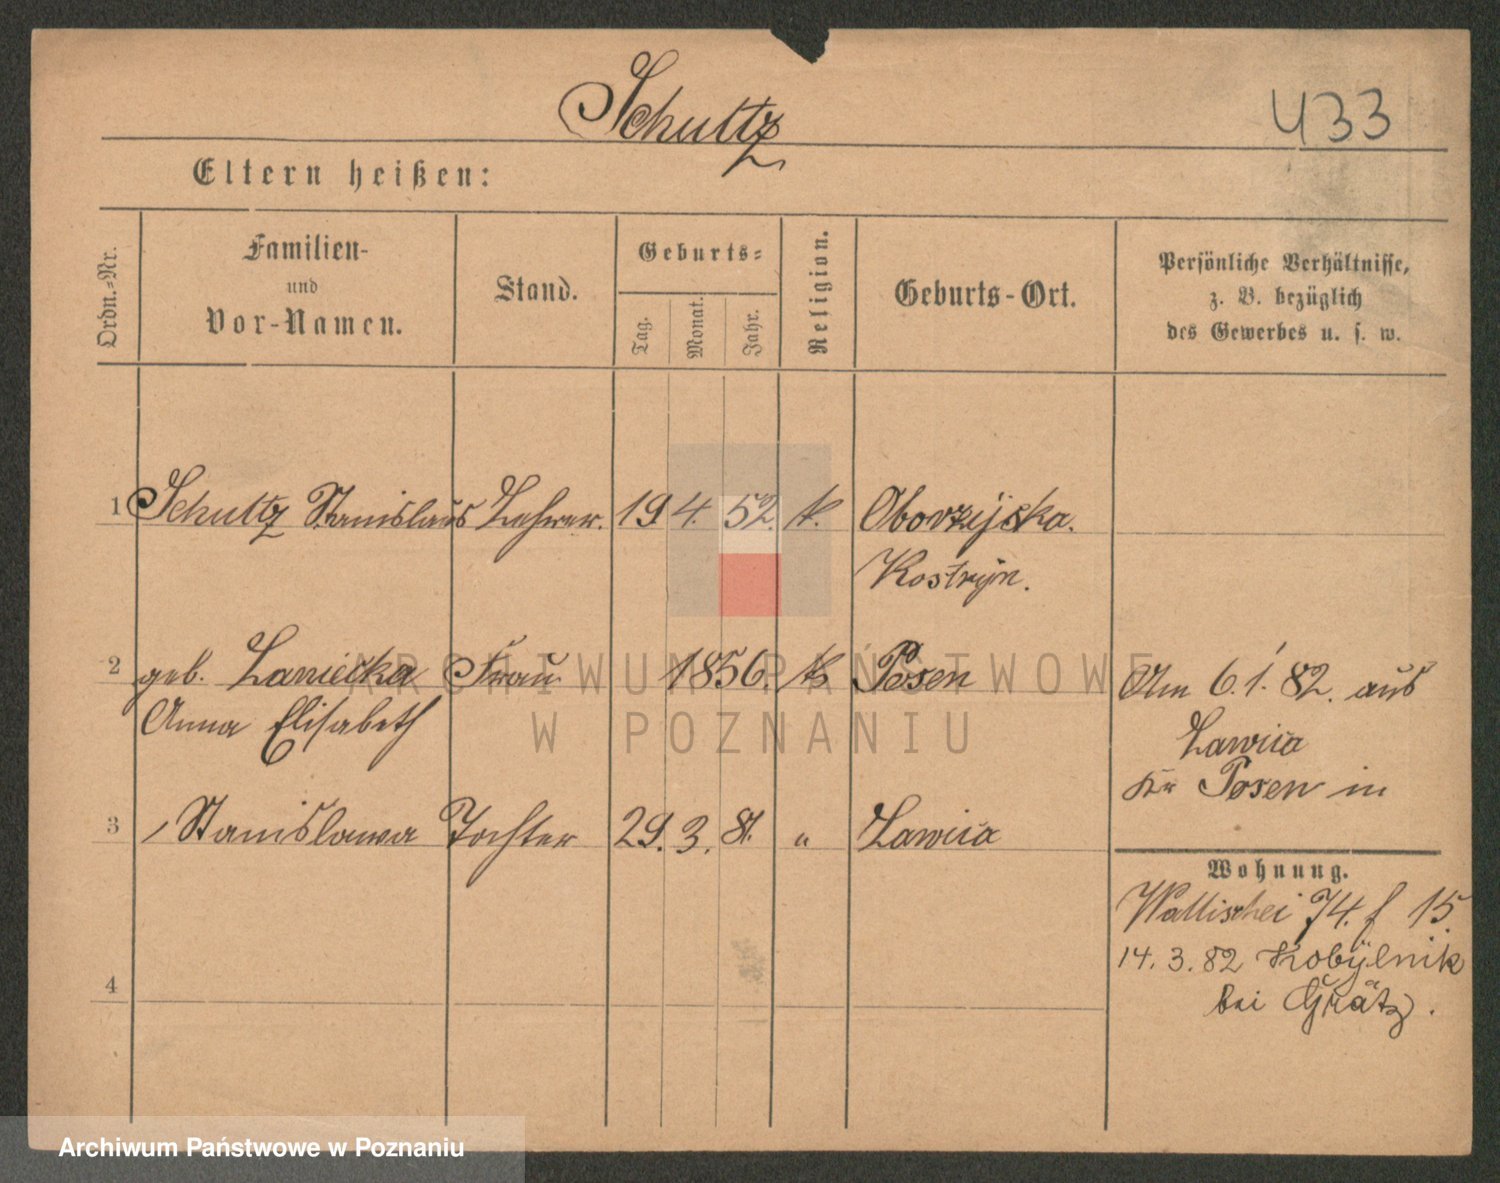 Schultz
433
Eltern heißen:
Ordn.-Nr.
Familien-
und
Vor-Namen.
Stand.
Geburts-
Tag.
Monat.
Jahr.
Religion.
Geburts-Ort.
Persönliche Verhältnisse,
z. B. bezüglich
des Gewerbes u. s. w.
1 Schultz Stanislaus Lehrer. 19 4. 52. k.
Kostrzyn.
2 geb. Frau 1856. k Posen
Anna Elisabeth
Am 6.1.82. aus
Lawica
Kr Posen in
3 Stanislawa Tochter 29. 3. 81. " Lawica
Wohnung.
Wallischei 74. f 15.
14.3.82 Kobylnik
bei Grätz.
4
ARCHIWUM PAŃSTWOWE
W POZNANIU
Archiwum Państwowe w Poznaniu